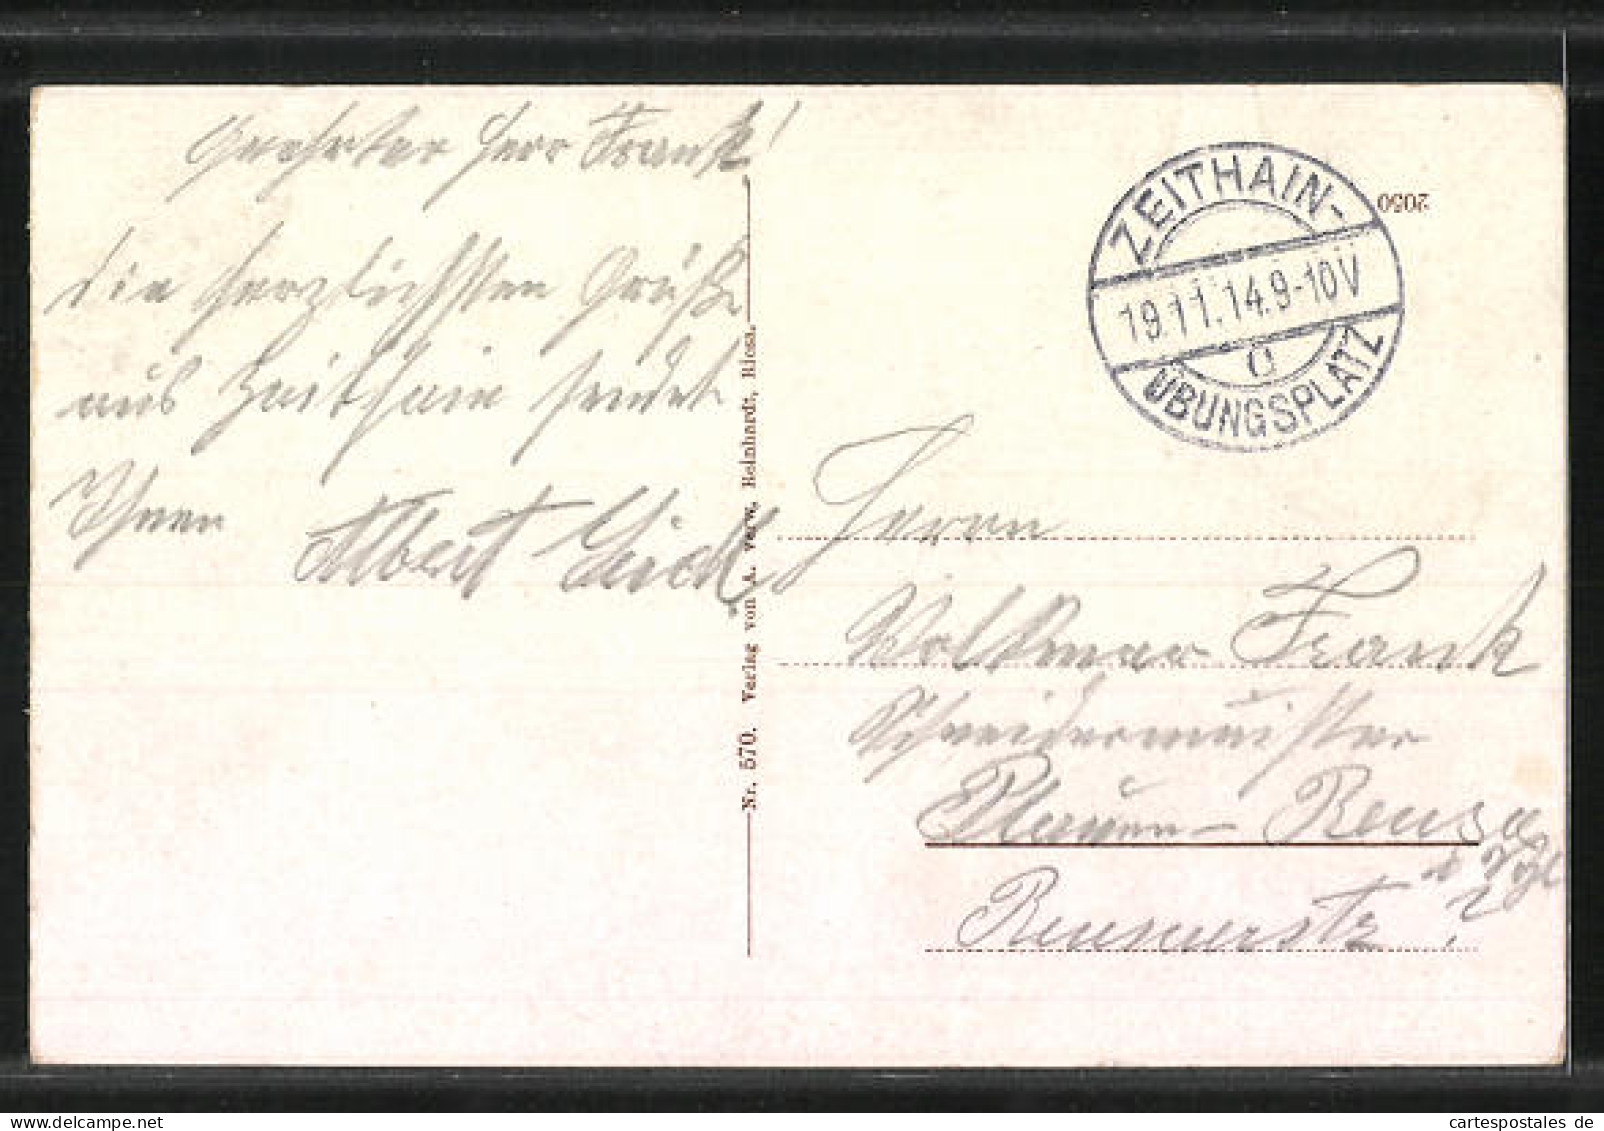 Geehrter Herr Frank!
die herzlichsten Grüße
aus Zeithain sendet
Ihnen Albert
Nr. 570. Verlag von A. verw. Reinhardt, Riesa.
ZEITHAIN-
19.11.14.9-10V
a
ÜBUNGSPLATZ
2050
Herrn
Volkmar Frank
Schneidermeister
Plauen- Reusa
i. Vgtl
cartespostales de